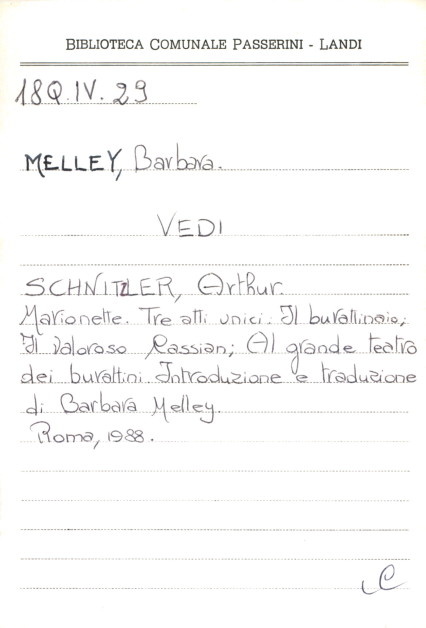 BIBLIOTECA COMUNALE PASSERINI - LANDI
18Q.IV.29
MELLEY, Barbara.
VEDI
SCHNITZLER, Arthur.
Marionette. Tre atti unici: Il burattinaio;
Il valoroso Kassian; Al grande teatro
dei burattini. Introduzione e traduzione
di Barbara Melley.
Roma, 1988.